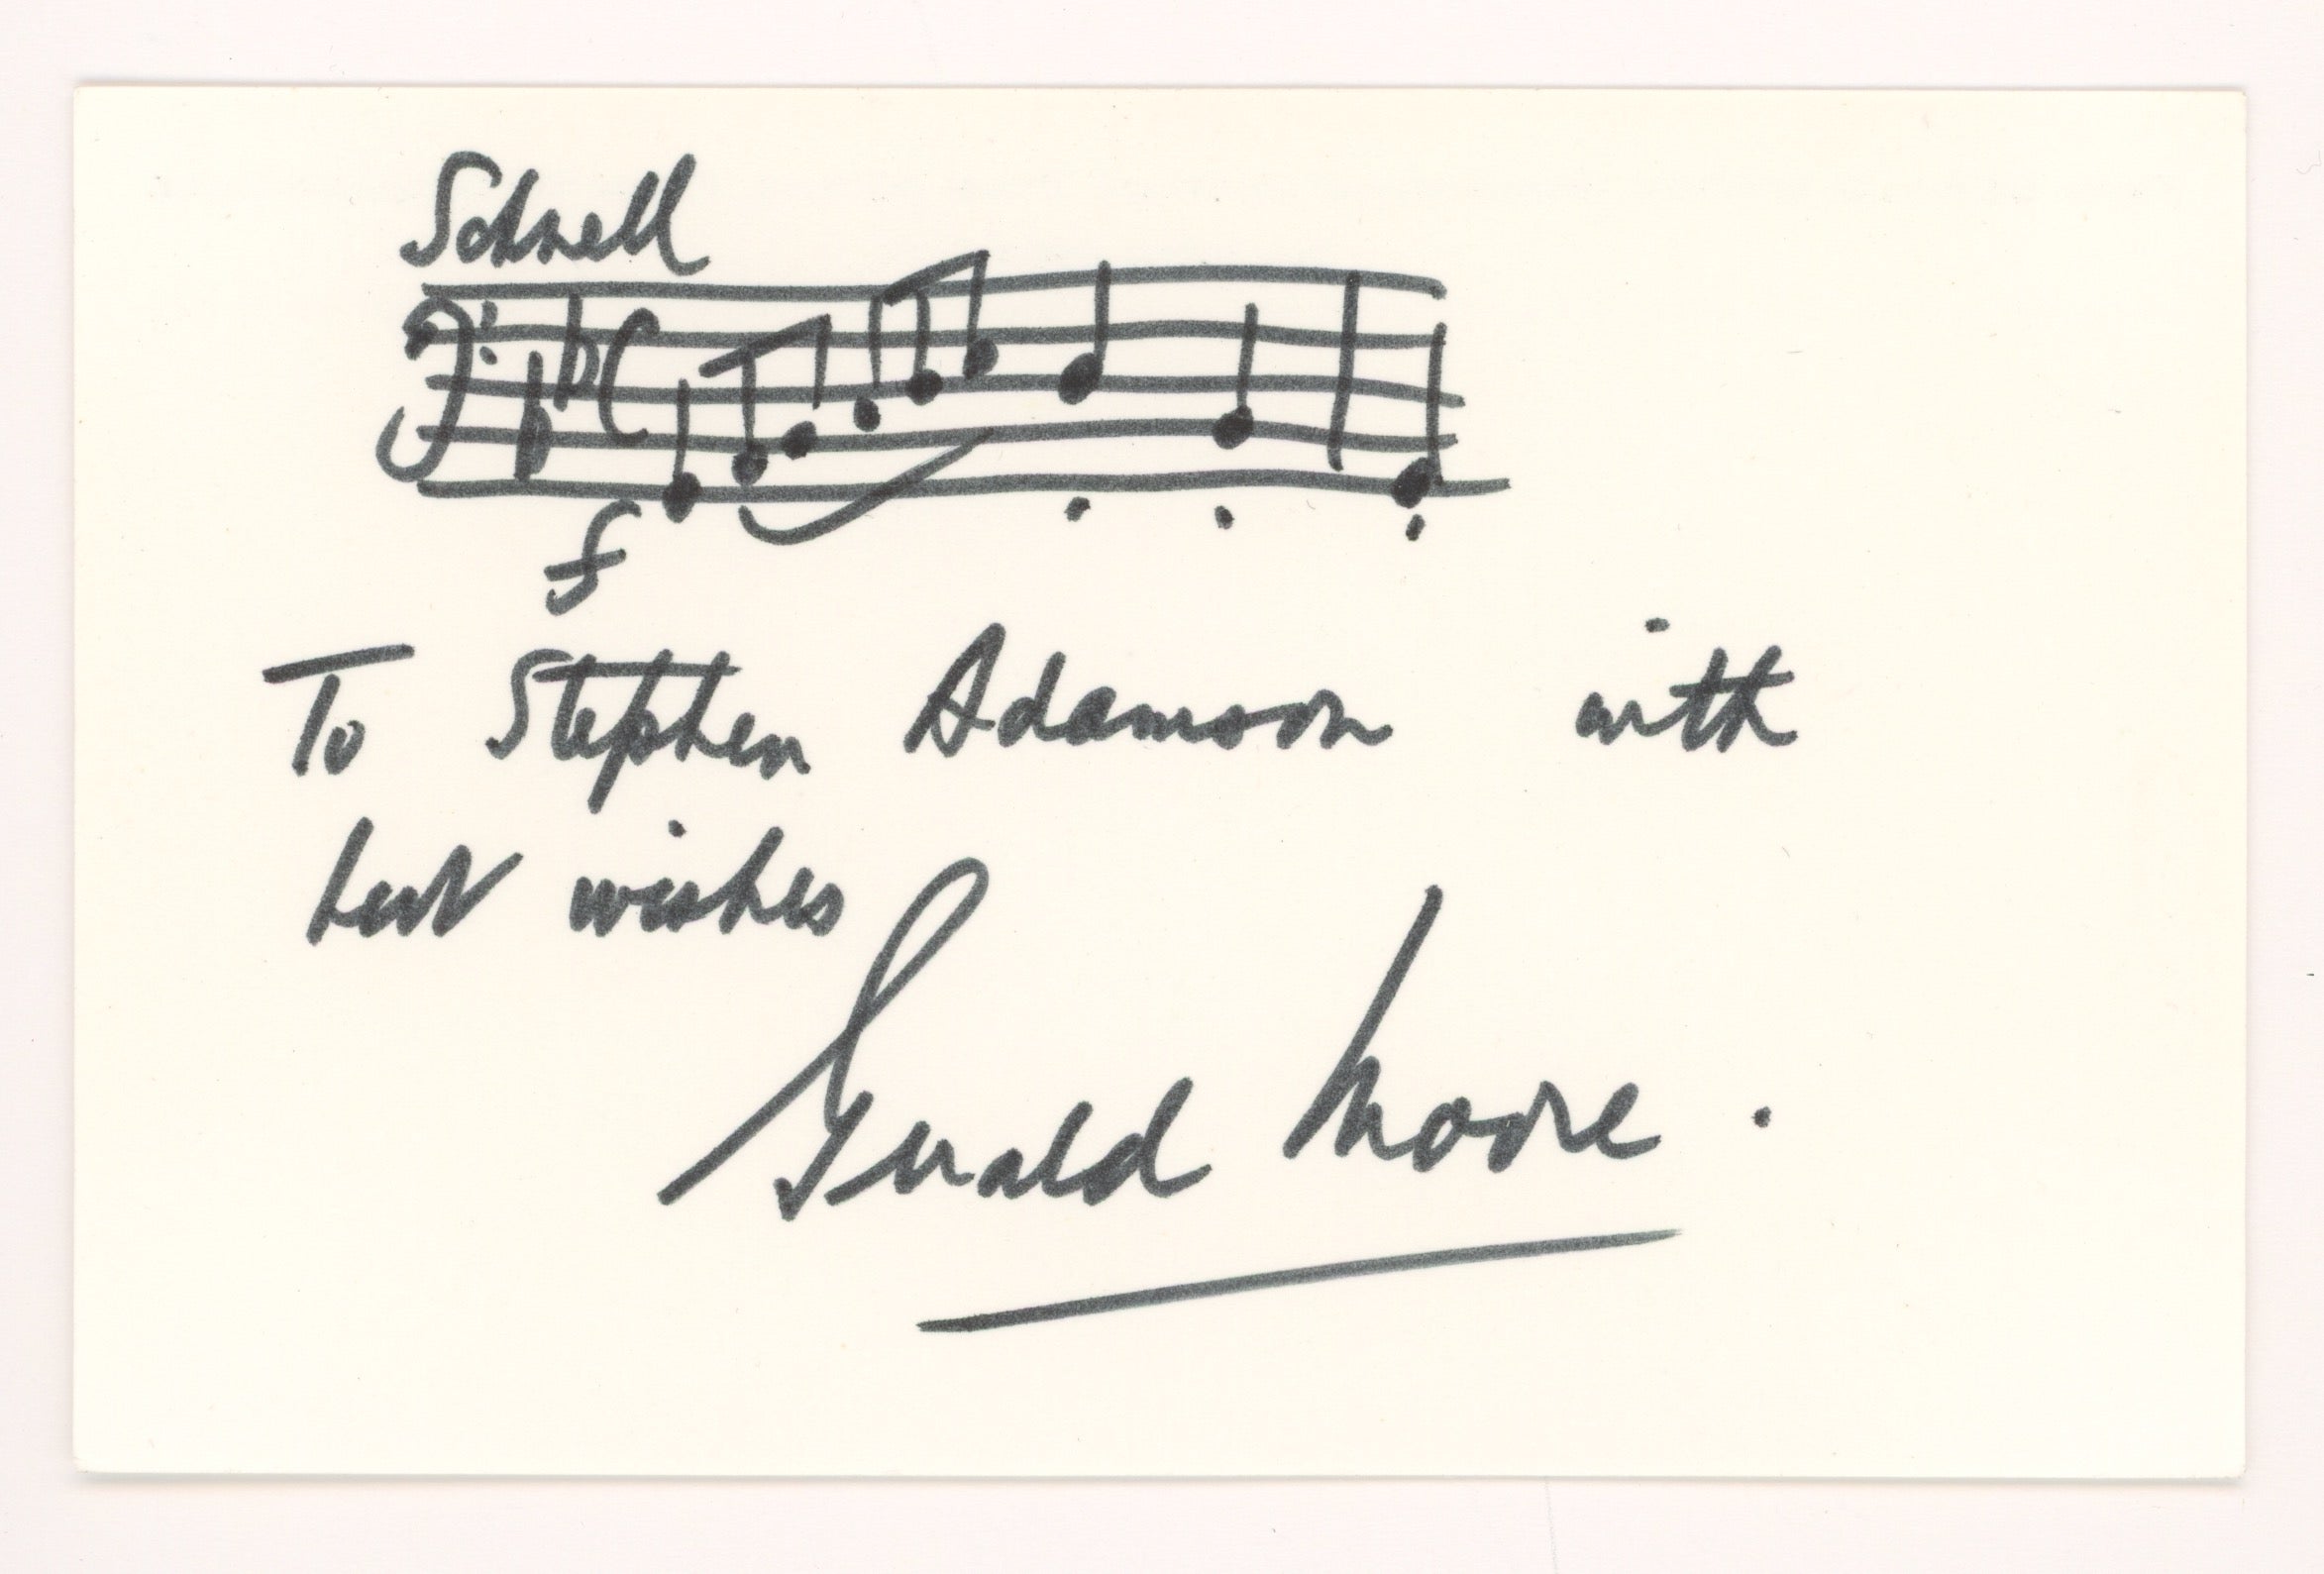 Schnell
f
To Stephen Adamson with
best wishes
Gerald Moore.